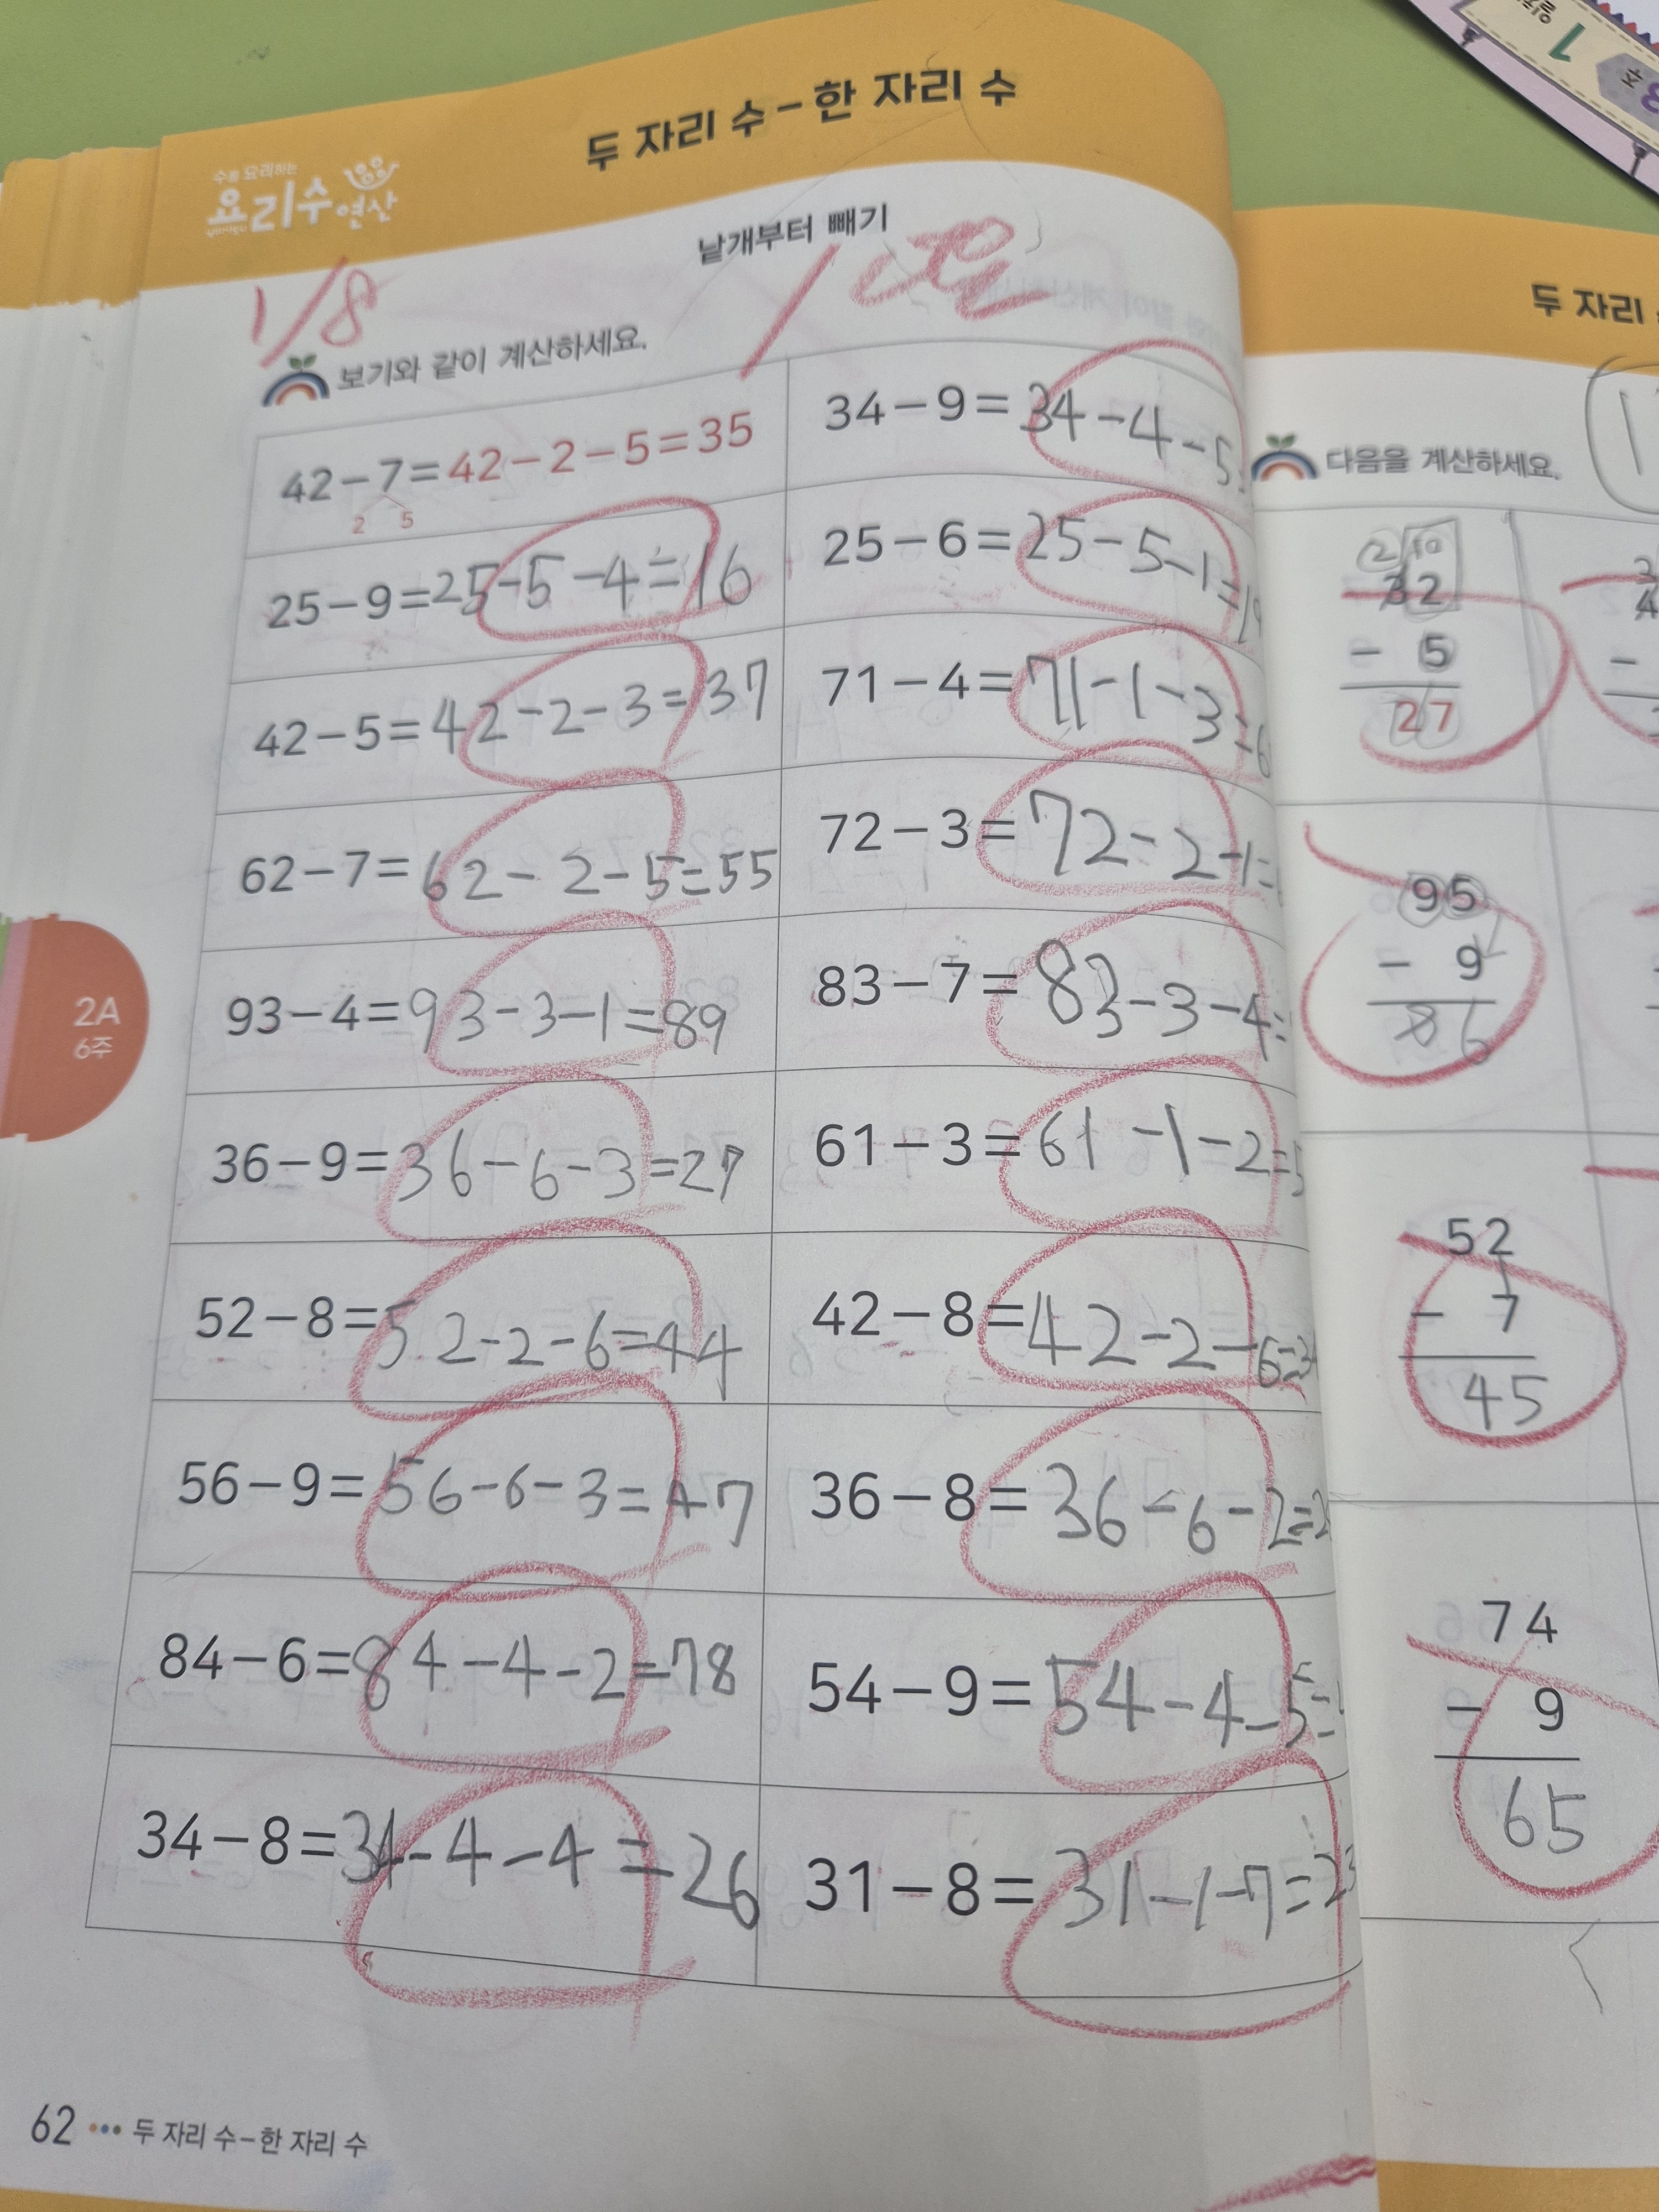 두 자리 수-한 자리 수
수를 요리하는
요리수연산
낱개부터 빼기
1/8
보기와 같이 계산하세요.
42-7=42-2-5=35
2 5
25-9=25-5-4=16
42-5=42-2-3=37
62-7=62-2-5=55
93-4=93-3-1=89
36-9=36-6-3=27
52-8=52-2-6=44
56-9=56-6-3=47
84-6=84-4-2=78
34-8=34-4-4=26
34-9=34-4-5
25-6=25-5-1=1
71-4=71-1-3=6
72-3=72-2-1=
83-7=83-3-4=
61-3=61-1-2=5
42-8=42-2-6=3
36-8=36-6-2=2
54-9=54-4-5=
31-8=31-1-7=23
2A
6주
62 ••• 두 자리 수-한 자리 수
두 자리
다음을 계산하세요.
2 10
32
- 5
27
95
- 9
86
52
- 7
45
74
- 9
65